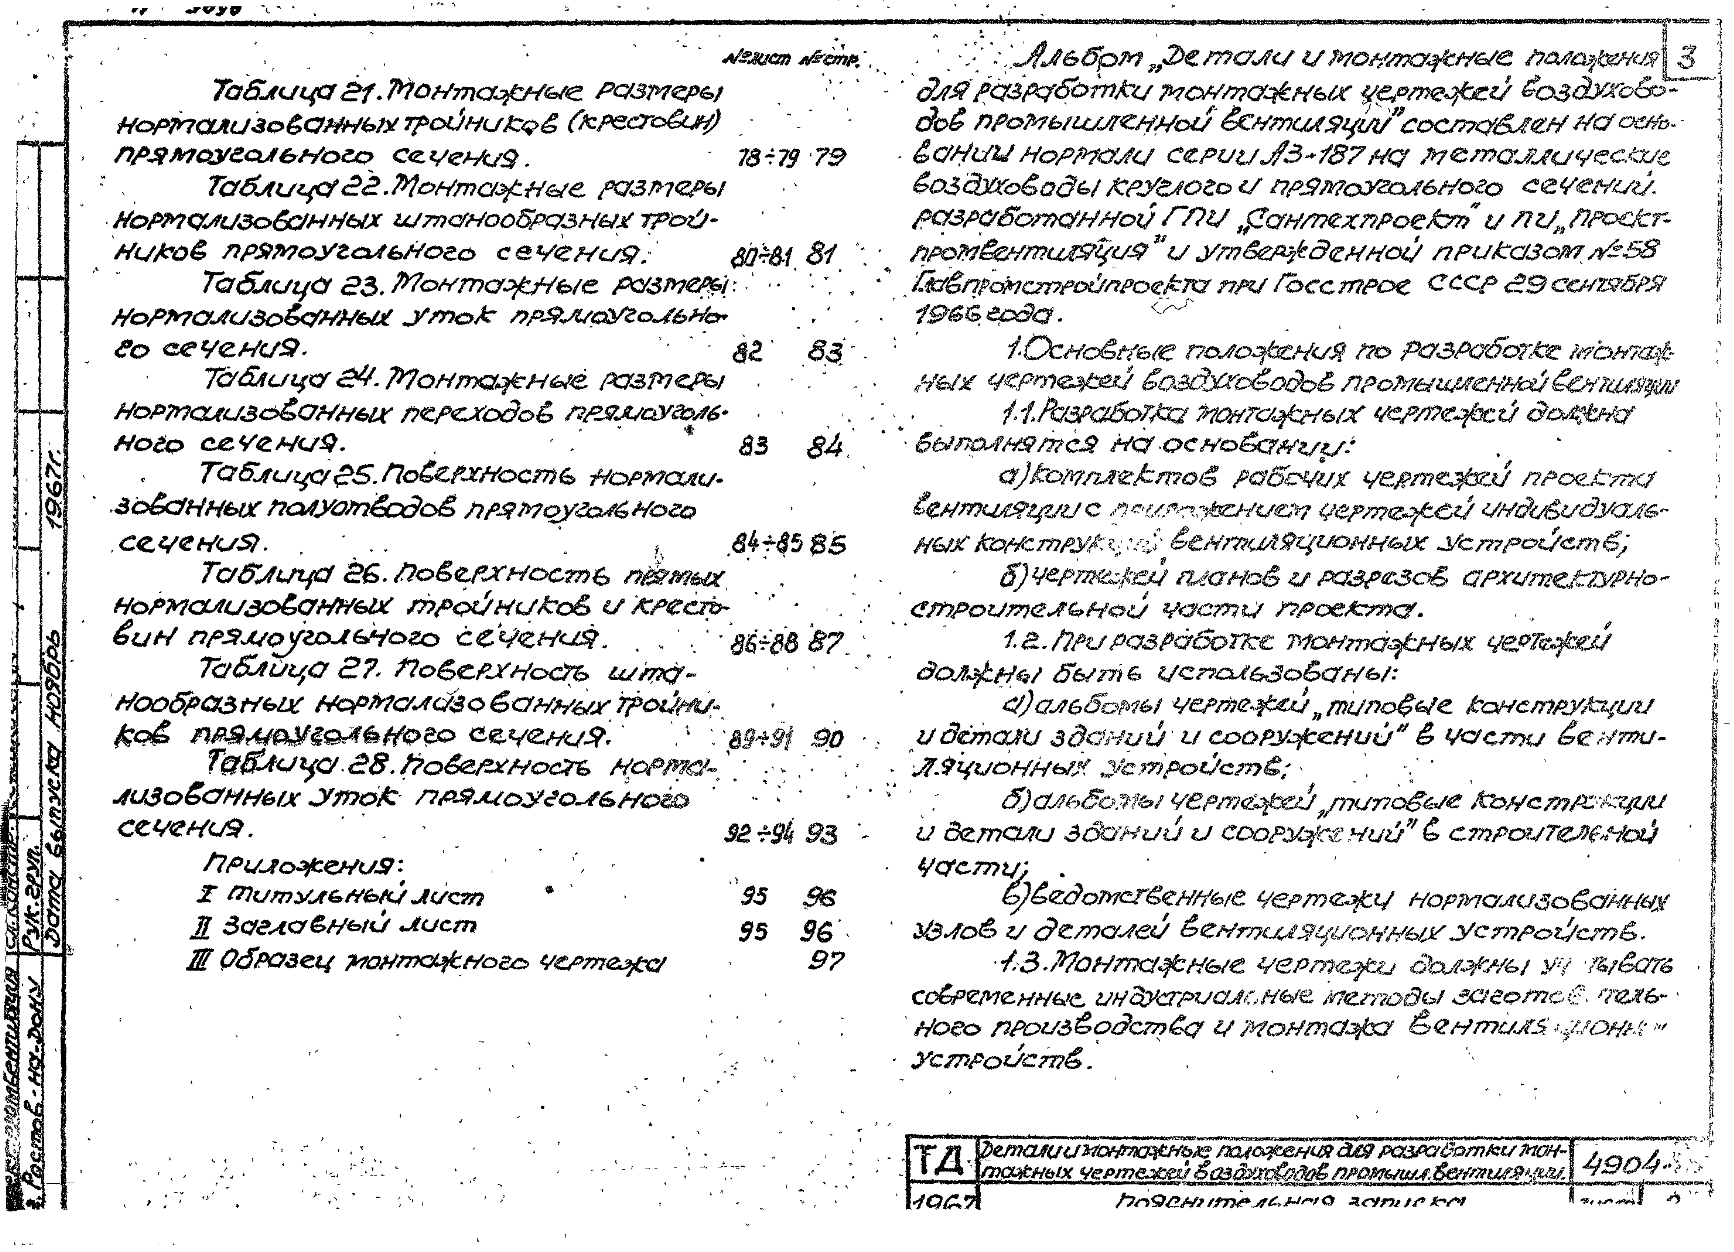 №лист №стр.
Таблица 21. Монтажные размеры
нормализованных тройников (крестовин)
прямоугольного сечения. 78÷79 79
Таблица 22. Монтажные размеры
нормализованных штанообразных трой-
ников прямоугольного сечения. 80÷81 81
Таблица 23. Монтажные размеры
нормализованных уток прямоугольно-
го сечения. 82 83
Таблица 24. Монтажные размеры
нормализованных переходов прямоуголь-
ного сечения. 83 84
Таблица 25. Поверхность нормали-
зованных полуотводов прямоугольного
сечения. 84÷85 85
Таблица 26. Поверхность прямых
нормализованных тройников и кресто-
вин прямоугольного сечения. 86÷88 87
Таблица 27. Поверхность шта-
нообразных нормализованных тройни-
ков прямоугольного сечения. 89÷91 90
Таблица 28. Поверхность норма-
лизованных уток прямоугольного
сечения. 92÷94 93
Приложения:
I Титульный лист 95 96
II Заглавный лист 95 96
III Образец монтажного чертежа 97
3
Альбом „Детали и монтажные положения
для разработки монтажных чертежей воздухово-
дов промышленной вентиляции" составлен на осно-
вании нормали серии АЗ-187 на металлические
воздуховоды круглого и прямоугольного сечений.
разработанной ГПИ „Сантехпроект" и ПИ „Проект-
промвентиляция" и утвержденной приказом №58
Главпромстройпроекта при Госстрое СССР 29 сентября
1966 года.
1. Основные положения по разработке монтаж-
ных чертежей воздуховодов промышленной вентиляции
1.1. Разработка монтажных чертежей должна
выполнятся на основании:
а) комплектов рабочих чертежей проекта
вентиляции с приложением чертежей индивидуаль-
ных конструкций вентиляционных устройств;
б) чертежей планов и разрезов архитектурно-
строительной части проекта.
1.2. При разработке монтажных чертежей
должны быть использованы:
а) альбомы чертежей „Типовые конструкции
и детали зданий и сооружений" в части венти-
ляционных устройств;
б) альбомы чертежей „Типовые конструкции
и детали зданий и сооружений" в строительной
части;
в) ведомственные чертежи нормализованных
узлов и деталей вентиляционных устройств.
1.3. Монтажные чертежи должны учитывать
современные индустриальные методы заготовительного
ного производства и монтажа вентиляционных
устройств.
ТД Детали и монтажные положения для разработки мон-
тажных чертежей воздуховодов промышл. вентиляции. 4904-
1967 Пояснительная записка лист
Дата выпуска ноябрь 1967г.
Рук. груп.
г. Ростов-на-Дону